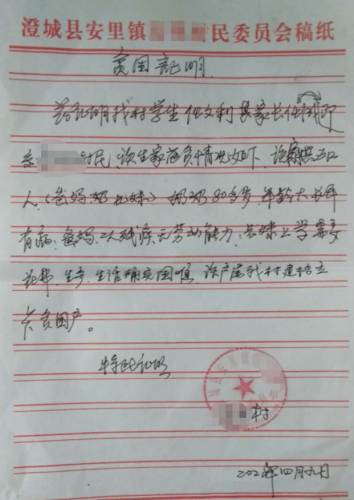 澄城县安里镇 民委员会稿纸
贫困证明
兹证明我村学生任文利 家长任
系 村民,该生家庭具体情况如下,该家庭五口
人(爸妈奶 妹)奶奶80多岁 年龄大 常年
有病,爸妈二人残疾无劳动能力,妹上学需要
花费 生产、生活确实困难 该户属我村建档立
卡贫困户。
特此证明
村
2021年四月九日